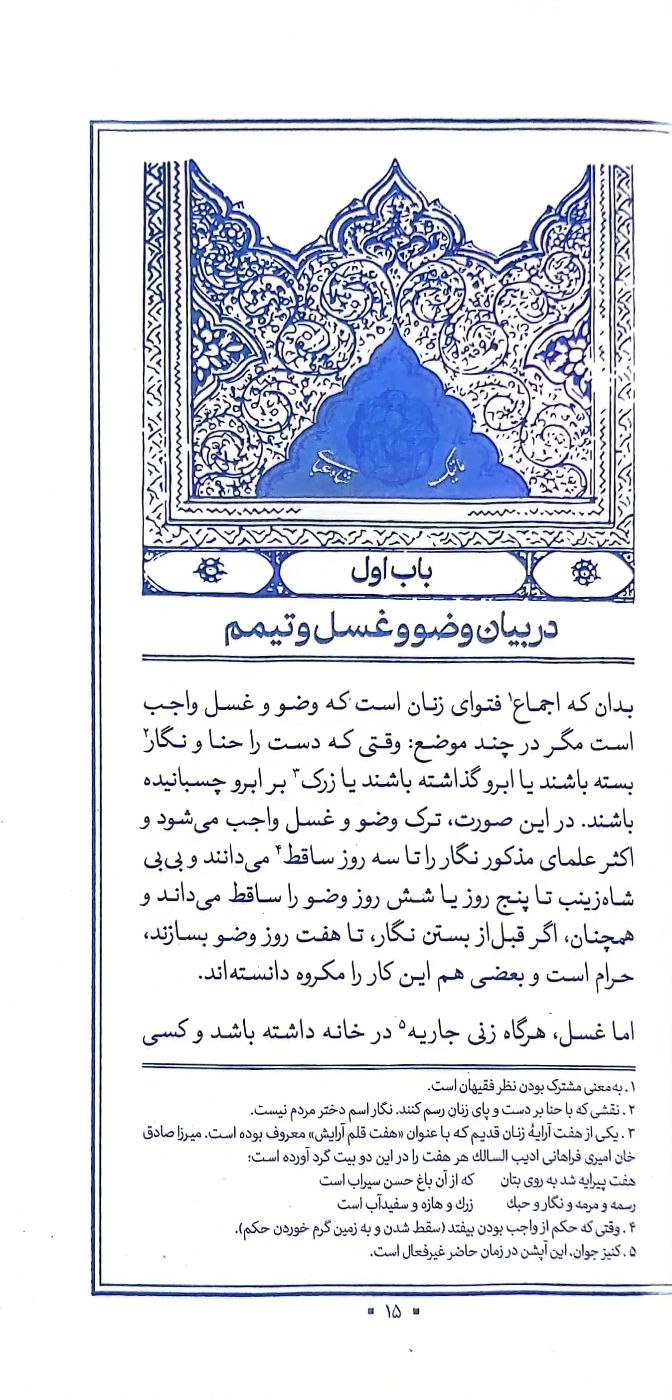 ماتیک
شاه‌عباسی
باب اول
در بیان وضو و غسل و تیمم
بدان که اجماع۱ فتوای زنان است که وضو و غسل واجب
است مگر در چند موضع: وقتی که دست را حنا و نگار۲
بسته باشند یا ابرو گذاشته باشند یا زرک۳ بر ابرو چسبانیده
باشند. در این صورت، ترک وضو و غسل واجب می‌شود و
اکثر علمای مذکور نگار را تا سه روز ساقط۴ می‌دانند و بی‌بی
شاه‌زینب تا پنج روز یا شش روز وضو را ساقط می‌داند و
همچنان، اگر قبل از بستن نگار، تا هفت روز وضو بسازند،
حرام است و بعضی هم این کار را مکروه دانسته‌اند.
اما غسل، هرگاه زنی جاریه۵ در خانه داشته باشد و کسی
۱. به‌معنی مشترک بودن نظر فقیهان است.
۲. نقشی که با حنا بر دست و پای زنان رسم کنند. نگار اسم دختر مردم نیست.
۳. یکی از هفت آرایهٔ زنان قدیم که با عنوان «هفت قلم آرایش» معروف بوده است. میرزا صادق
خان امیری فراهانی ادیب السالک هر هفت را در این دو بیت گرد آورده است:
هفت پیرایه شد به روی بتان که از آن باغ حسن سیراب است
رسمه و مرمه و نگار و حبك زرك و هازه و سفیدآب است
۴. وقتی که حکم از واجب بودن بیفتد (سقط شدن و به زمین گرم خوردن حکم).
۵. کنیز جوان. این آپشن در زمان حاضر غیرفعال است.
۱۵